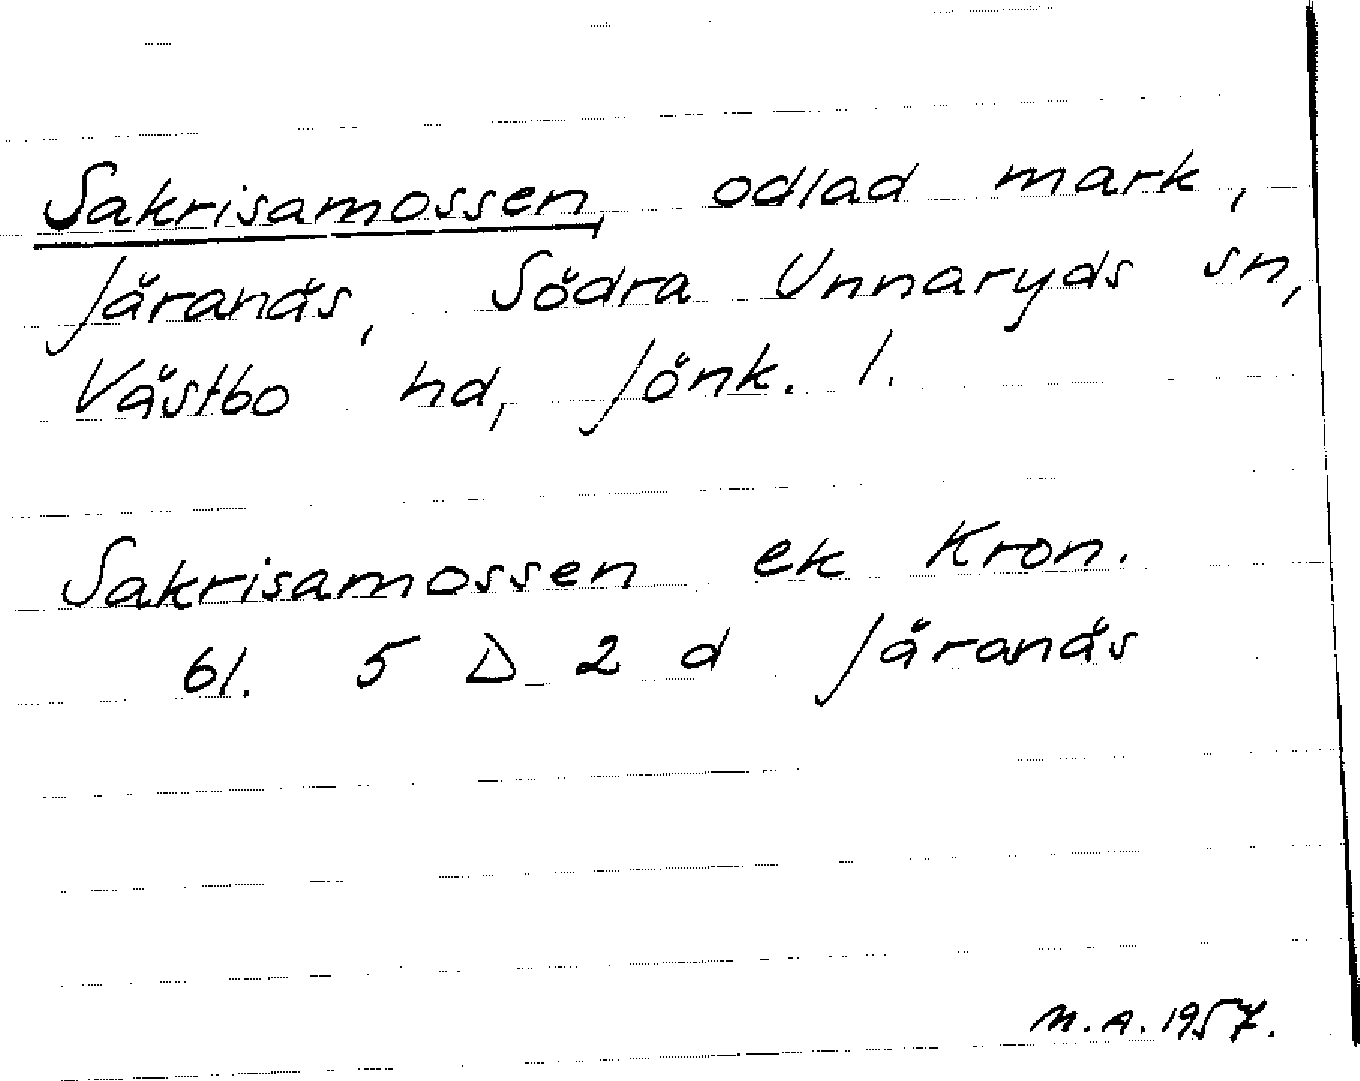 Sakrisamossen, odlad mark,
Järanäs, Södra Unnaryds sn,
Västbo hd, Jönk. l.
Sakrisamossen ek Kron.
bl. 5 D 2 d Järanäs
M.A. 1957.